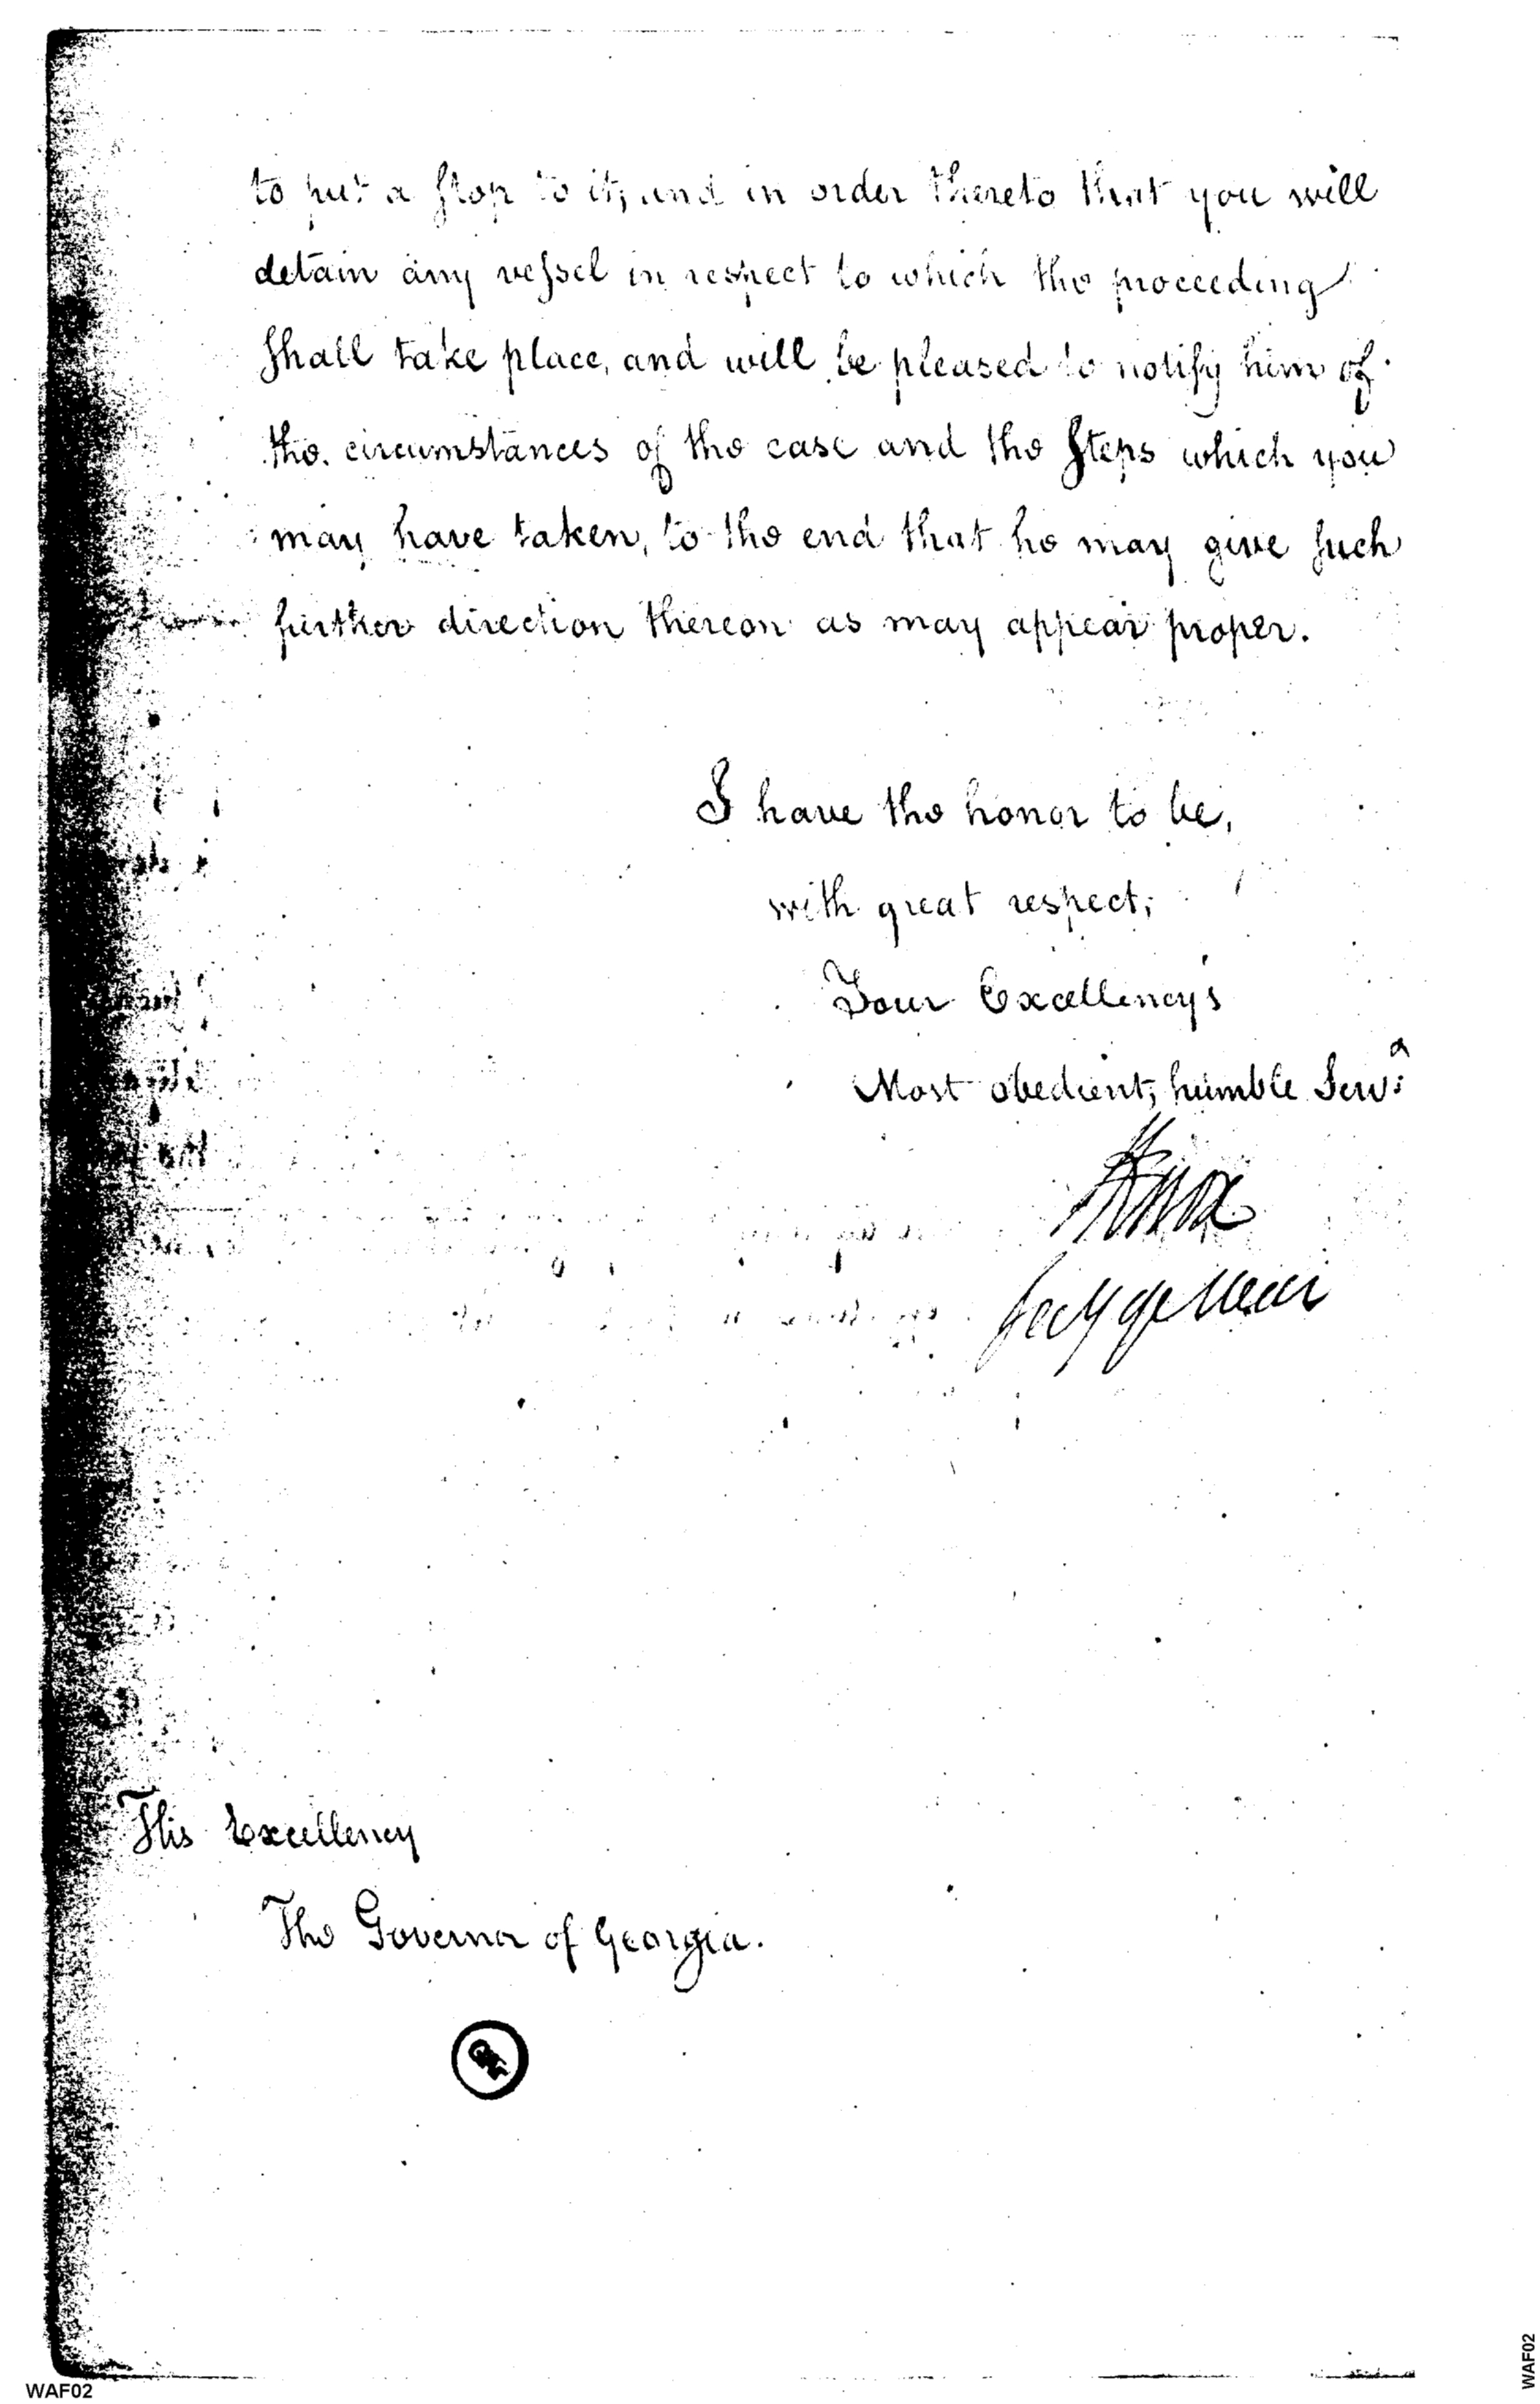 to put a stop to it; and in order thereto that you will
detain any vessel in respect to which the proceeding
shall take place, and will be pleased to notify him of
the circumstances of the case and the steps which you
may have taken, to the end that he may give such
further direction thereon as may appear proper.
I have the honor to be,
with great respect;
Your Excellency's
Most obedient, humble Serv:
HKnox
Secy of War
His Excellency
The Governor of Georgia.
WAF02
WAF02